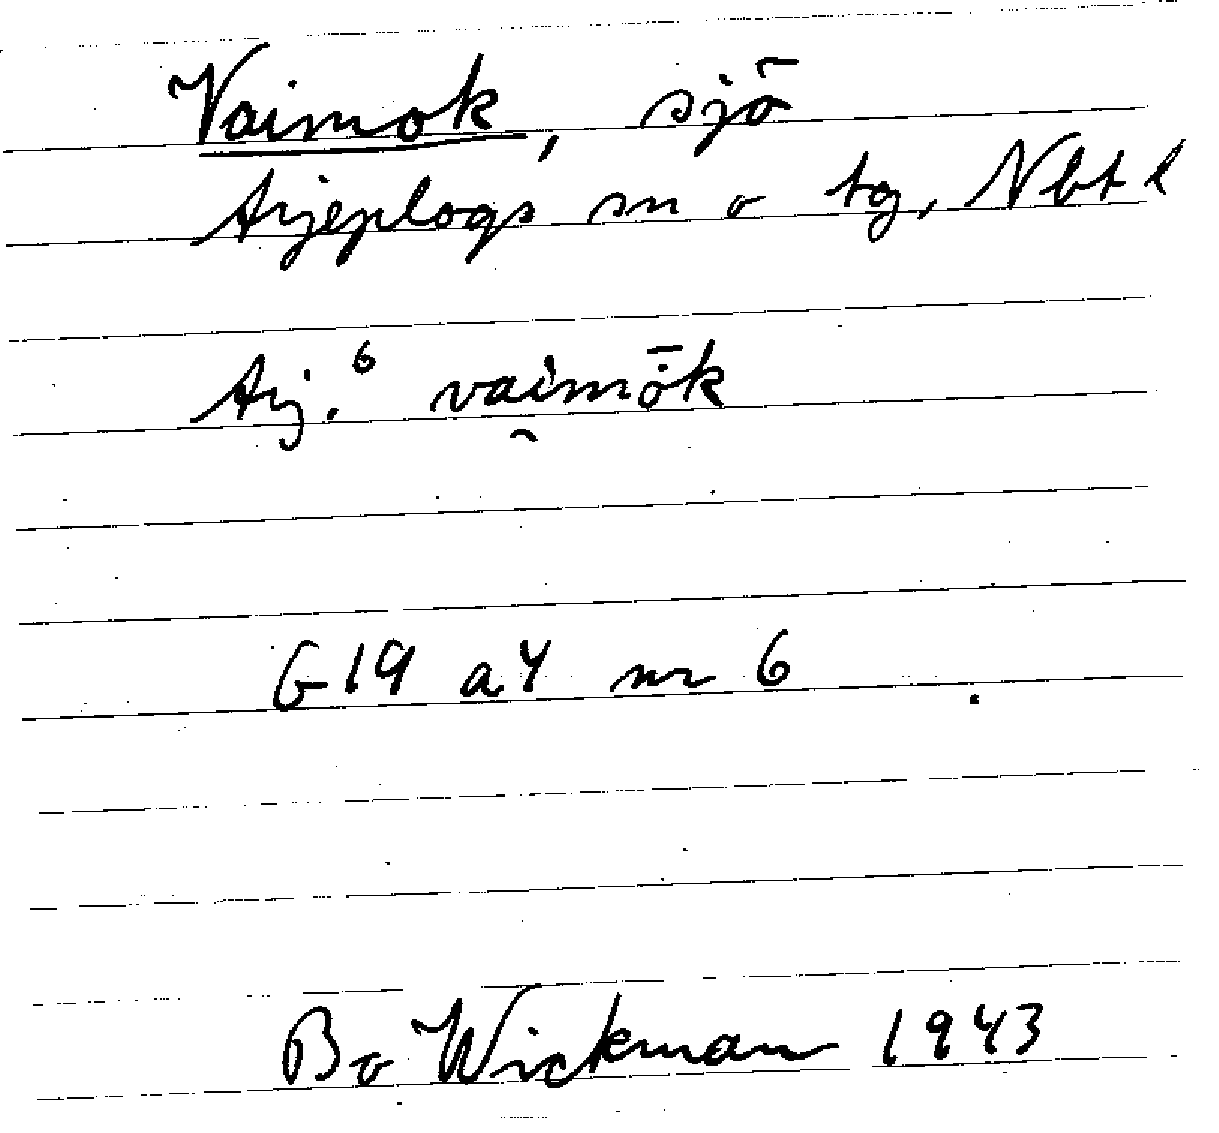 Vaimok, sjö
Arjeplogs sn o tg, Nbt l
Arj.⁶ vai̯mō̇k
G19 a4 nr 6
Bo Wickman 1943